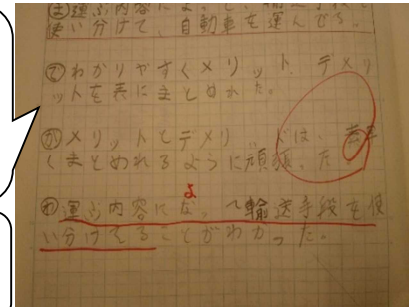 使い分けて、自動車を運んでる。
でわかりやすくメリット、デメリ
ットを表にまとめれた。
がメリットとデメリットは、
くまとめれるように頑張った
わ運ぶ内容によって輸送手段を使
い分けてることがわかった。